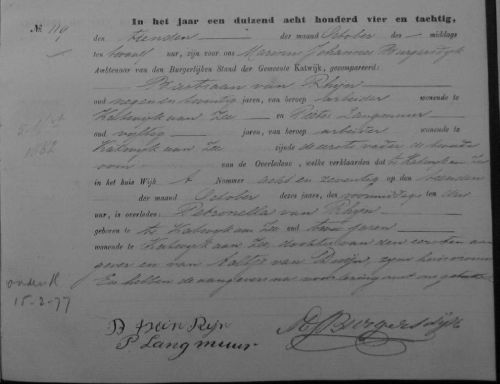 In het jaar een duizend acht honderd vier en tachtig,
No. 119
den tienden der maand October des middags
ten twaalf uur, zijn voor ons Marinus Johannes Burgersdijk
Ambtenaar van den Burgerlijken Stand der Gemeente Katwijk, gecompareerd:
Bastiaan van Rhijn
oud negen en twintig jaren, van beroep arbeider wonende te
Katwijk aan Zee en Pieter Langmuur
oud vijftig jaren, van beroep arbeider wonende te
Katwijk aan Zee zijnde de eerste vader de tweede
oom van de Overledene, welke verklaarden dat te Katwijk aan Zee
in het huis Wijk A Nommer acht en zeventig op den tienden
der maand October dezes jaars, des voormiddags ten drie
uur, is overleden: Petronella van Rhijn
geboren te Katwijk aan Zee oud twee jaren
wonende te Katwijk aan Zee, dochter van den eersten aan
gever en van Aaltje van Duijn, zijne huisvrouw
En hebben de aangevers na voorlezing met ons geteekend
1882
onder K
15-2-77
B van Rijn
P Langmuur
MJBurgersdijk